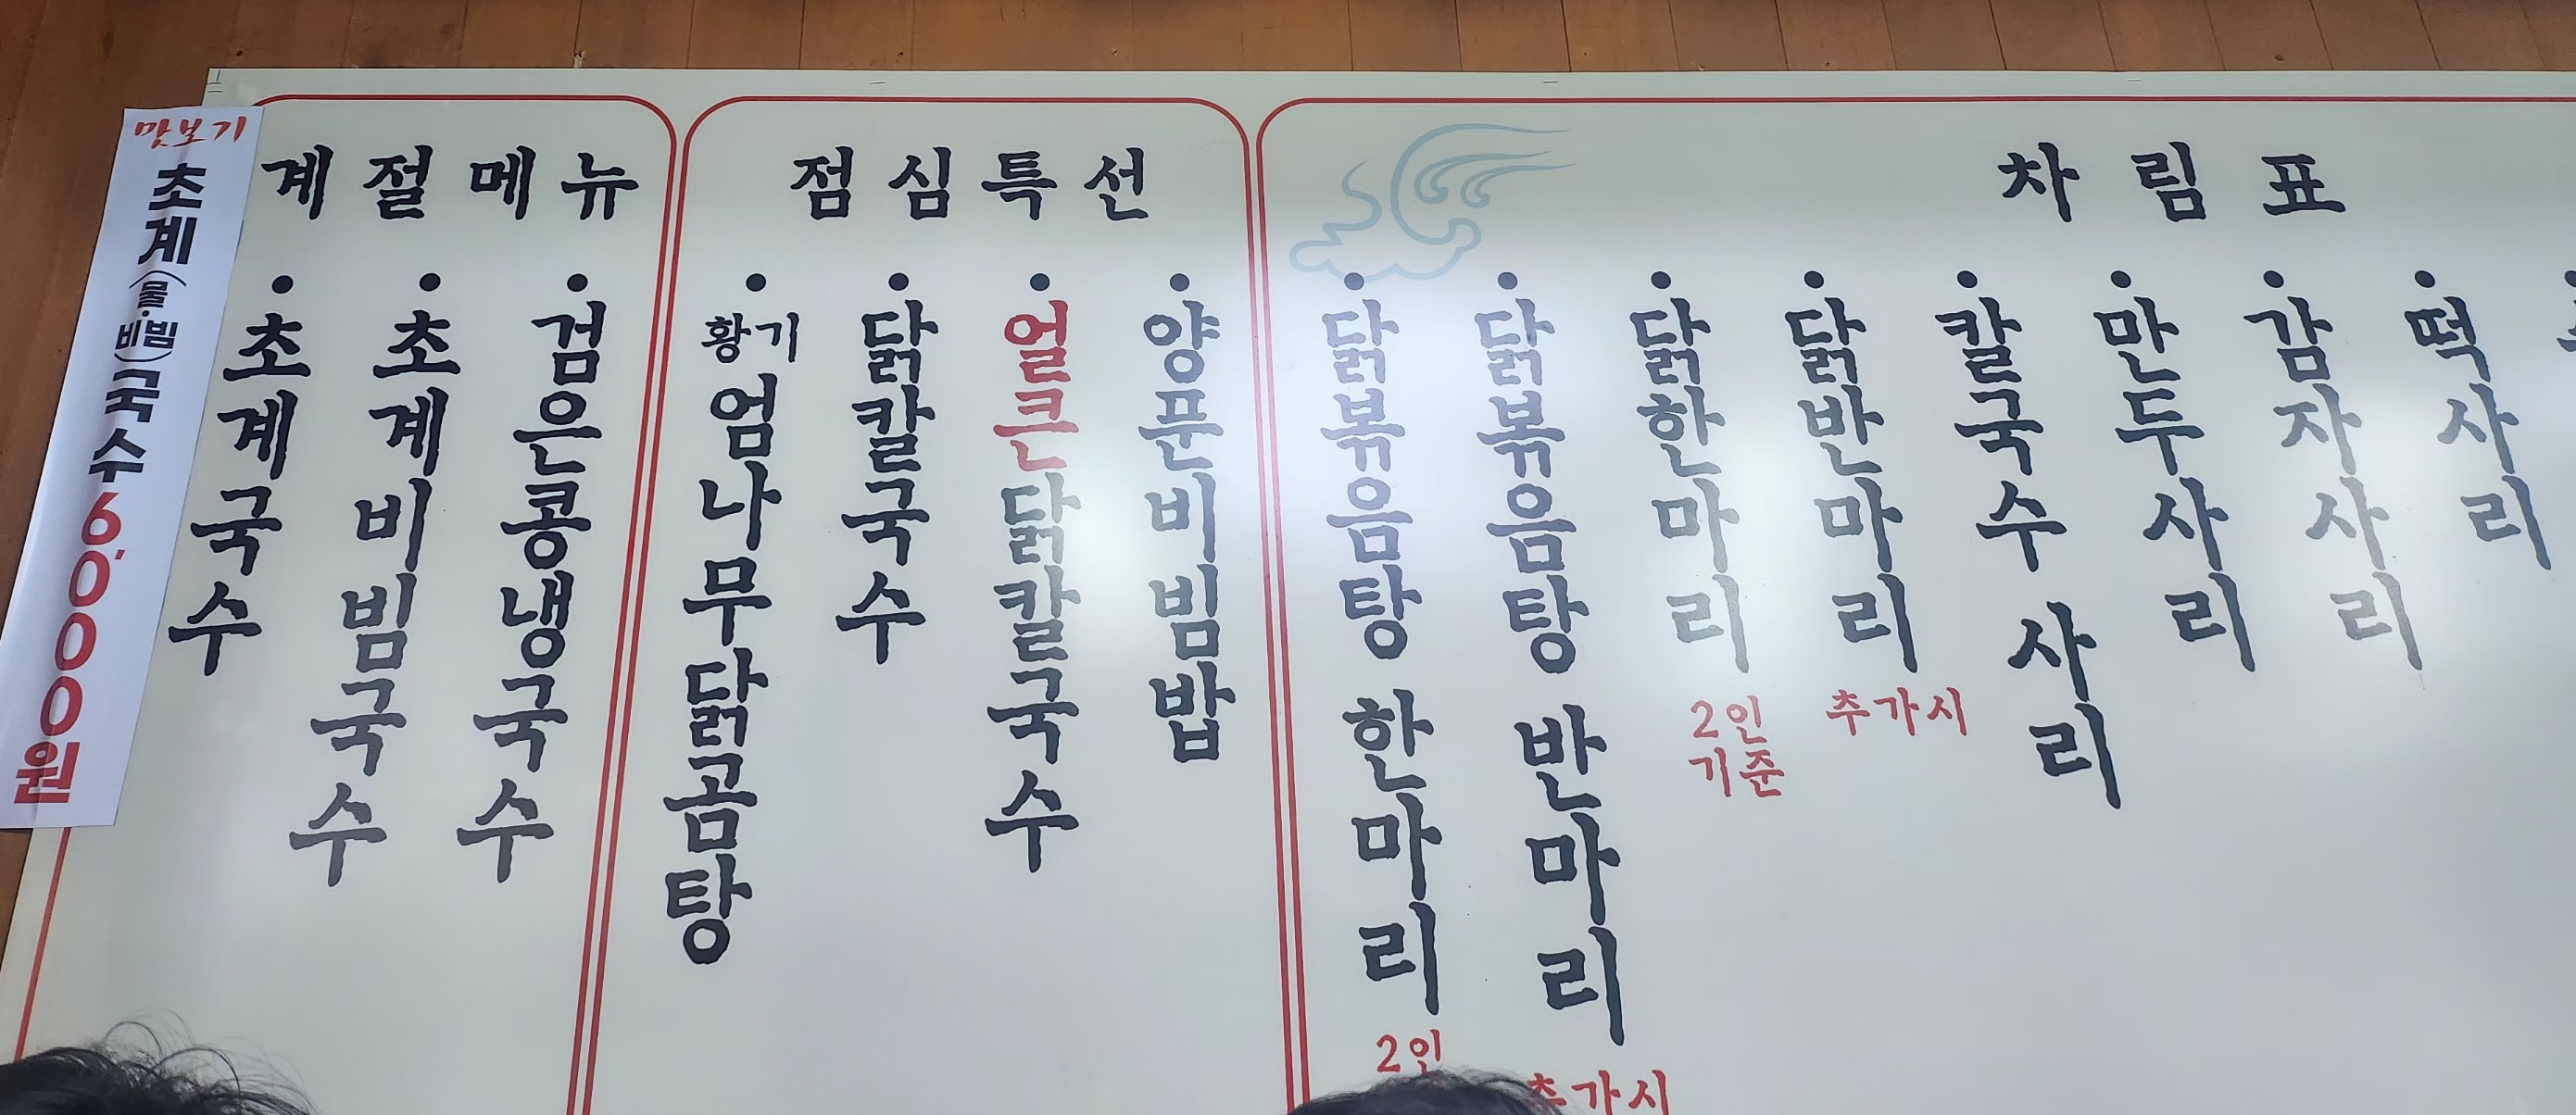 맛보기
초계(물·비빔)국수 6,000원
계절메뉴
• 초계국수
• 초계비빔국수
• 검은콩냉국수
점심특선
• 황기 엄나무닭곰탕
• 닭칼국수
• 얼큰닭칼국수
• 양푼비빔밥
차림표
• 닭볶음탕 한마리
2인
• 닭볶음탕 반마리
추가시
• 닭한마리
2인
기준
• 닭반마리
추가시
• 칼국수 사리
• 만두사리
• 감자사리
• 떡사리